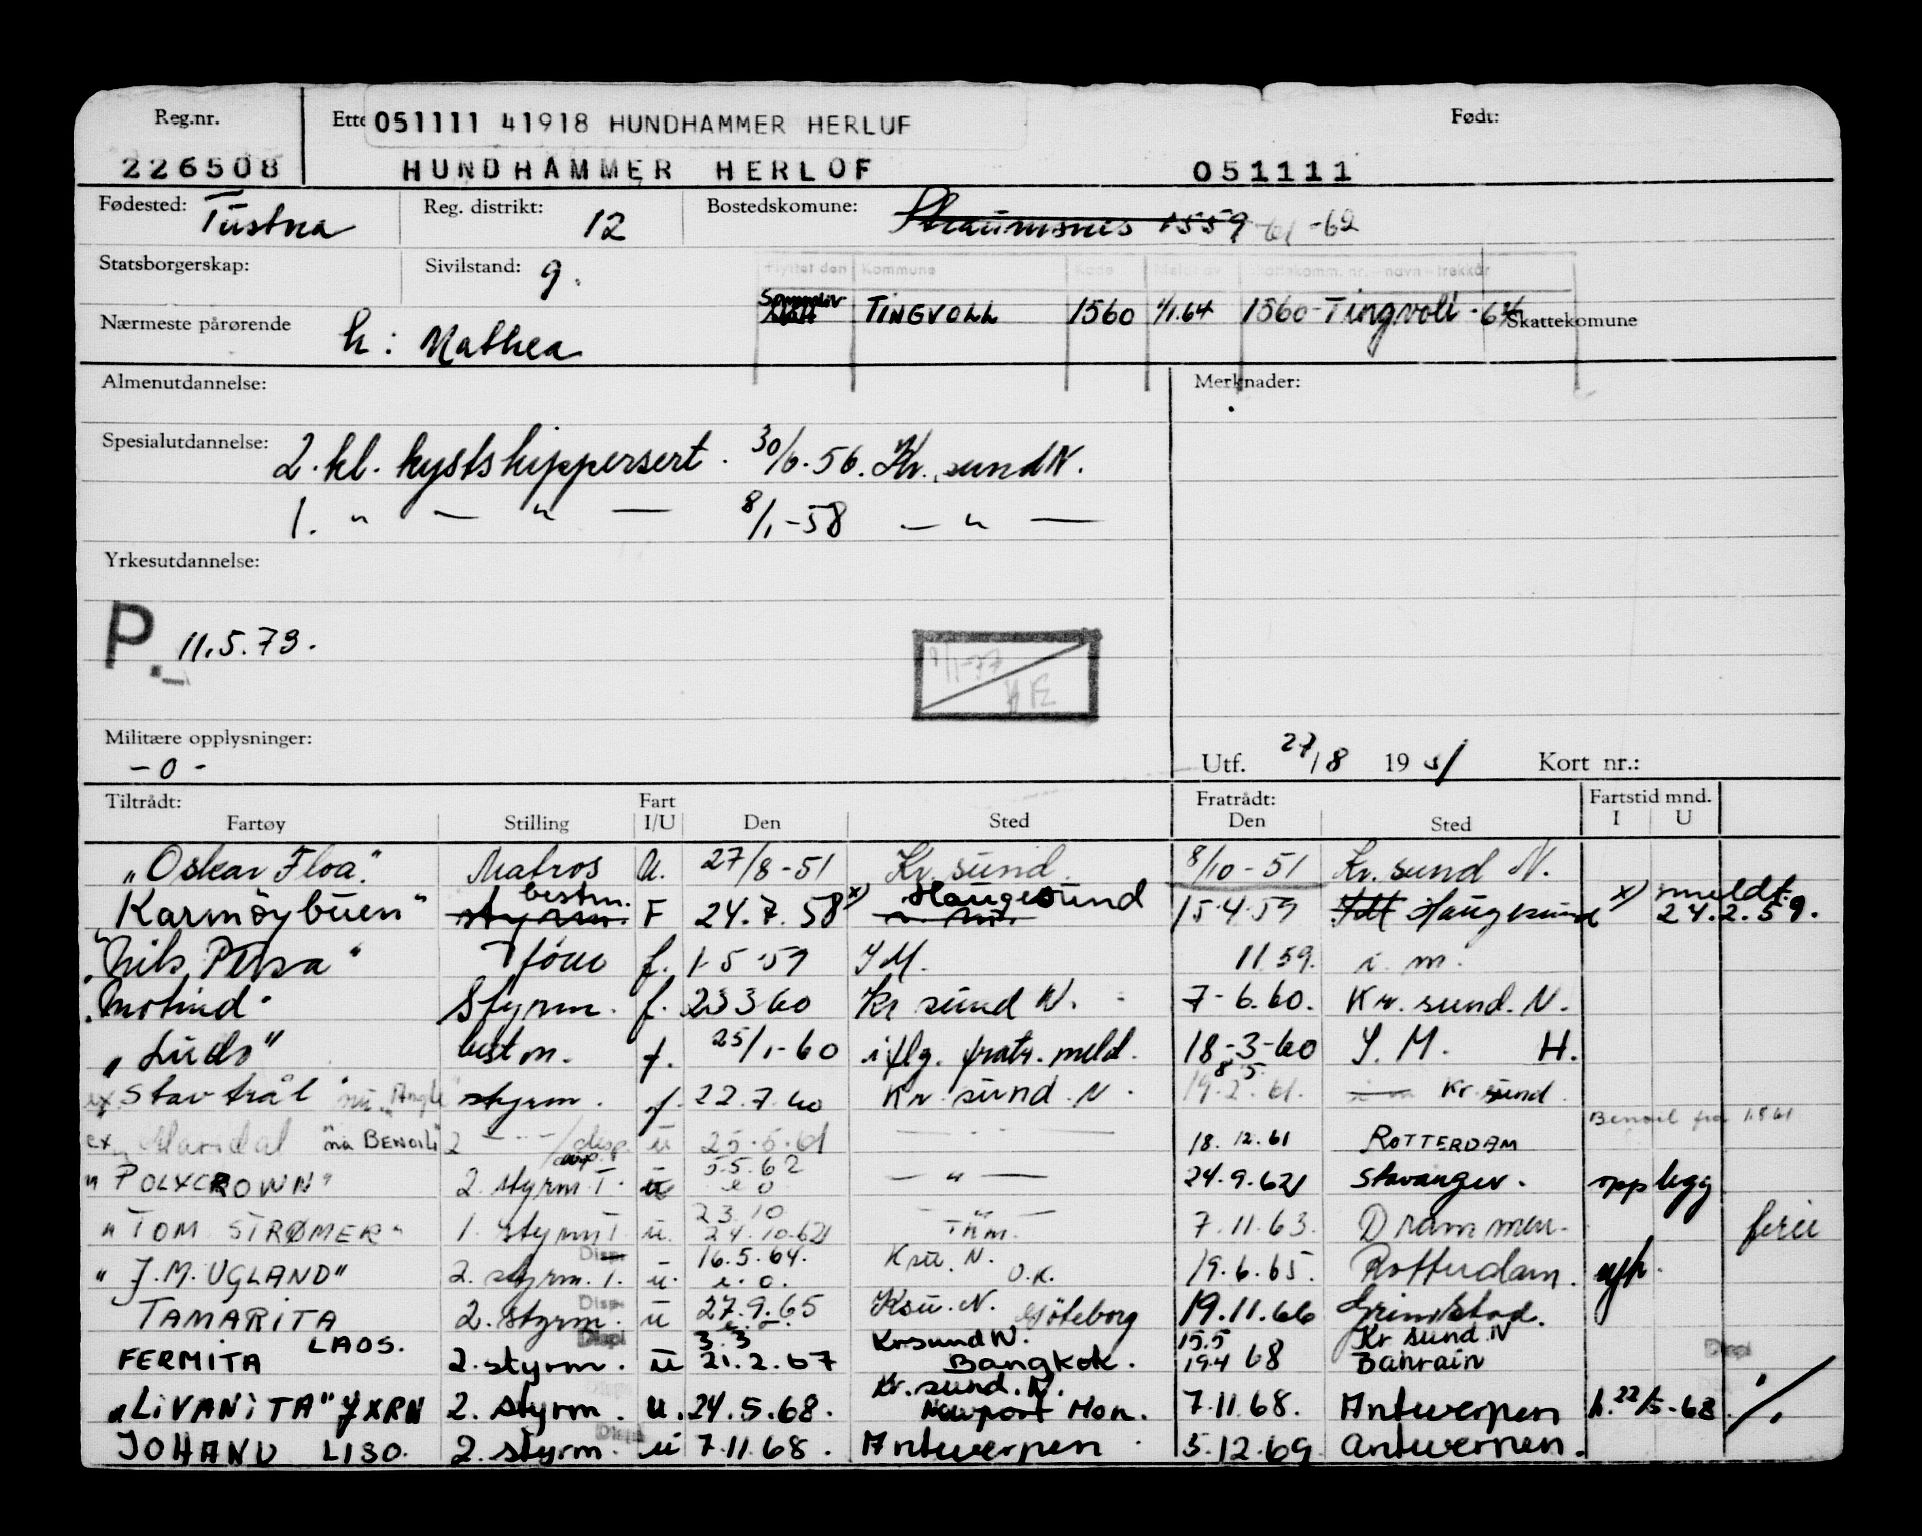 Reg.nr. Ette 051111 41918 HUNDHAMMER HERLUF Født:
226508 HUNDHAMMER HERLOF 051111
Fødested: Tustna Reg. distrikt: 12 Bostedskomune: Straumsnes 1559 -61 -62
Statsborgerskap: Sivilstand: g.
Flyttet den Kommune Kode Meldt av Skattekomm. nr. - navn - trekkår
TINGVOLL 1560 1/1.64 1560-Tingvoll -64
Nærmeste pårørende h: Mathea Skattekomune
Almenutdannelse: Merknader:
Spesialutdannelse: 2. kl. kystskippersert. 30/6-56. Kr.sund N.
1. " — " — 8/1-58 — " —
Yrkesutdannelse:
P. 11.5.73.
Militære opplysninger: -0-
Utf. 27/8 1951 Kort nr.:
Tiltrådt: Fart Fratrådt: Fartstid mnd.
Fartøy Stilling I/U Den Sted Den Sted I U
"Oskar Floa" Matros U. 27/8-51 Kr.sund. 8/10-51 Kr.sund N.
"Karmøybuen" styrm. bestm. F 24.7.58 x) Haugesund 15-4-59 Haugesund x) meldt. 24.2.59.
"Nils Petsa" f. 1-5-59 I M. 11 59. i. m.
"Motind" Styrm. f. 23 3 60 Kr sund N. 7-6.60. Kr.sund.N.
"Ludo" bestm. f. 25/1-60 iflg. fratr. meld. 18-3-60 I. M. H.
ex Stavtrål styrm. f. 22.7.60 Kr.sund.N. 19.2.61. 8 5. Kr.sund
ex Mardal "nå BENOIL" 2 — " — /disp. u 25-5-61 — " — 18.12.61 ROTTERDAM Benoil fra 1.8.61
"POLYCROWN" 2. styrm.T. u 5.5.62 — " — 24.9.62 Stavanger. opplegg
"TOM STRØMER" 1. styrm T u. 23.10 24.10.62 — " — 7.11.63. Drammen. ferie
"J.M. UGLAND" 2. styrm. T. Disp. u. 16.5.64. Ksu. N. O.K. 19.6.65. Rotterdam.
TAMARITA 2. styrm. Disp. u 27.9.65 Ksu. N. Göteborg 19.11.66 Grimstad.
FERMITA LAOS. 2. styrm. Displ u 3.3 21.2.67 Krsund N. Bangkok. 15.5 19.4 68 Kr sund N Bahrain Displ
"LIVANITA" JXRN 2. styrm. u. 24.5.68. Kr.sund.N. Newport Mon. 7.11.68. Antwerpen h. 22/5-68 ./.
JOHANN LISO. 2. styrm. u 7.11.68. Antwerpen 5.12.69 Antwerpen.